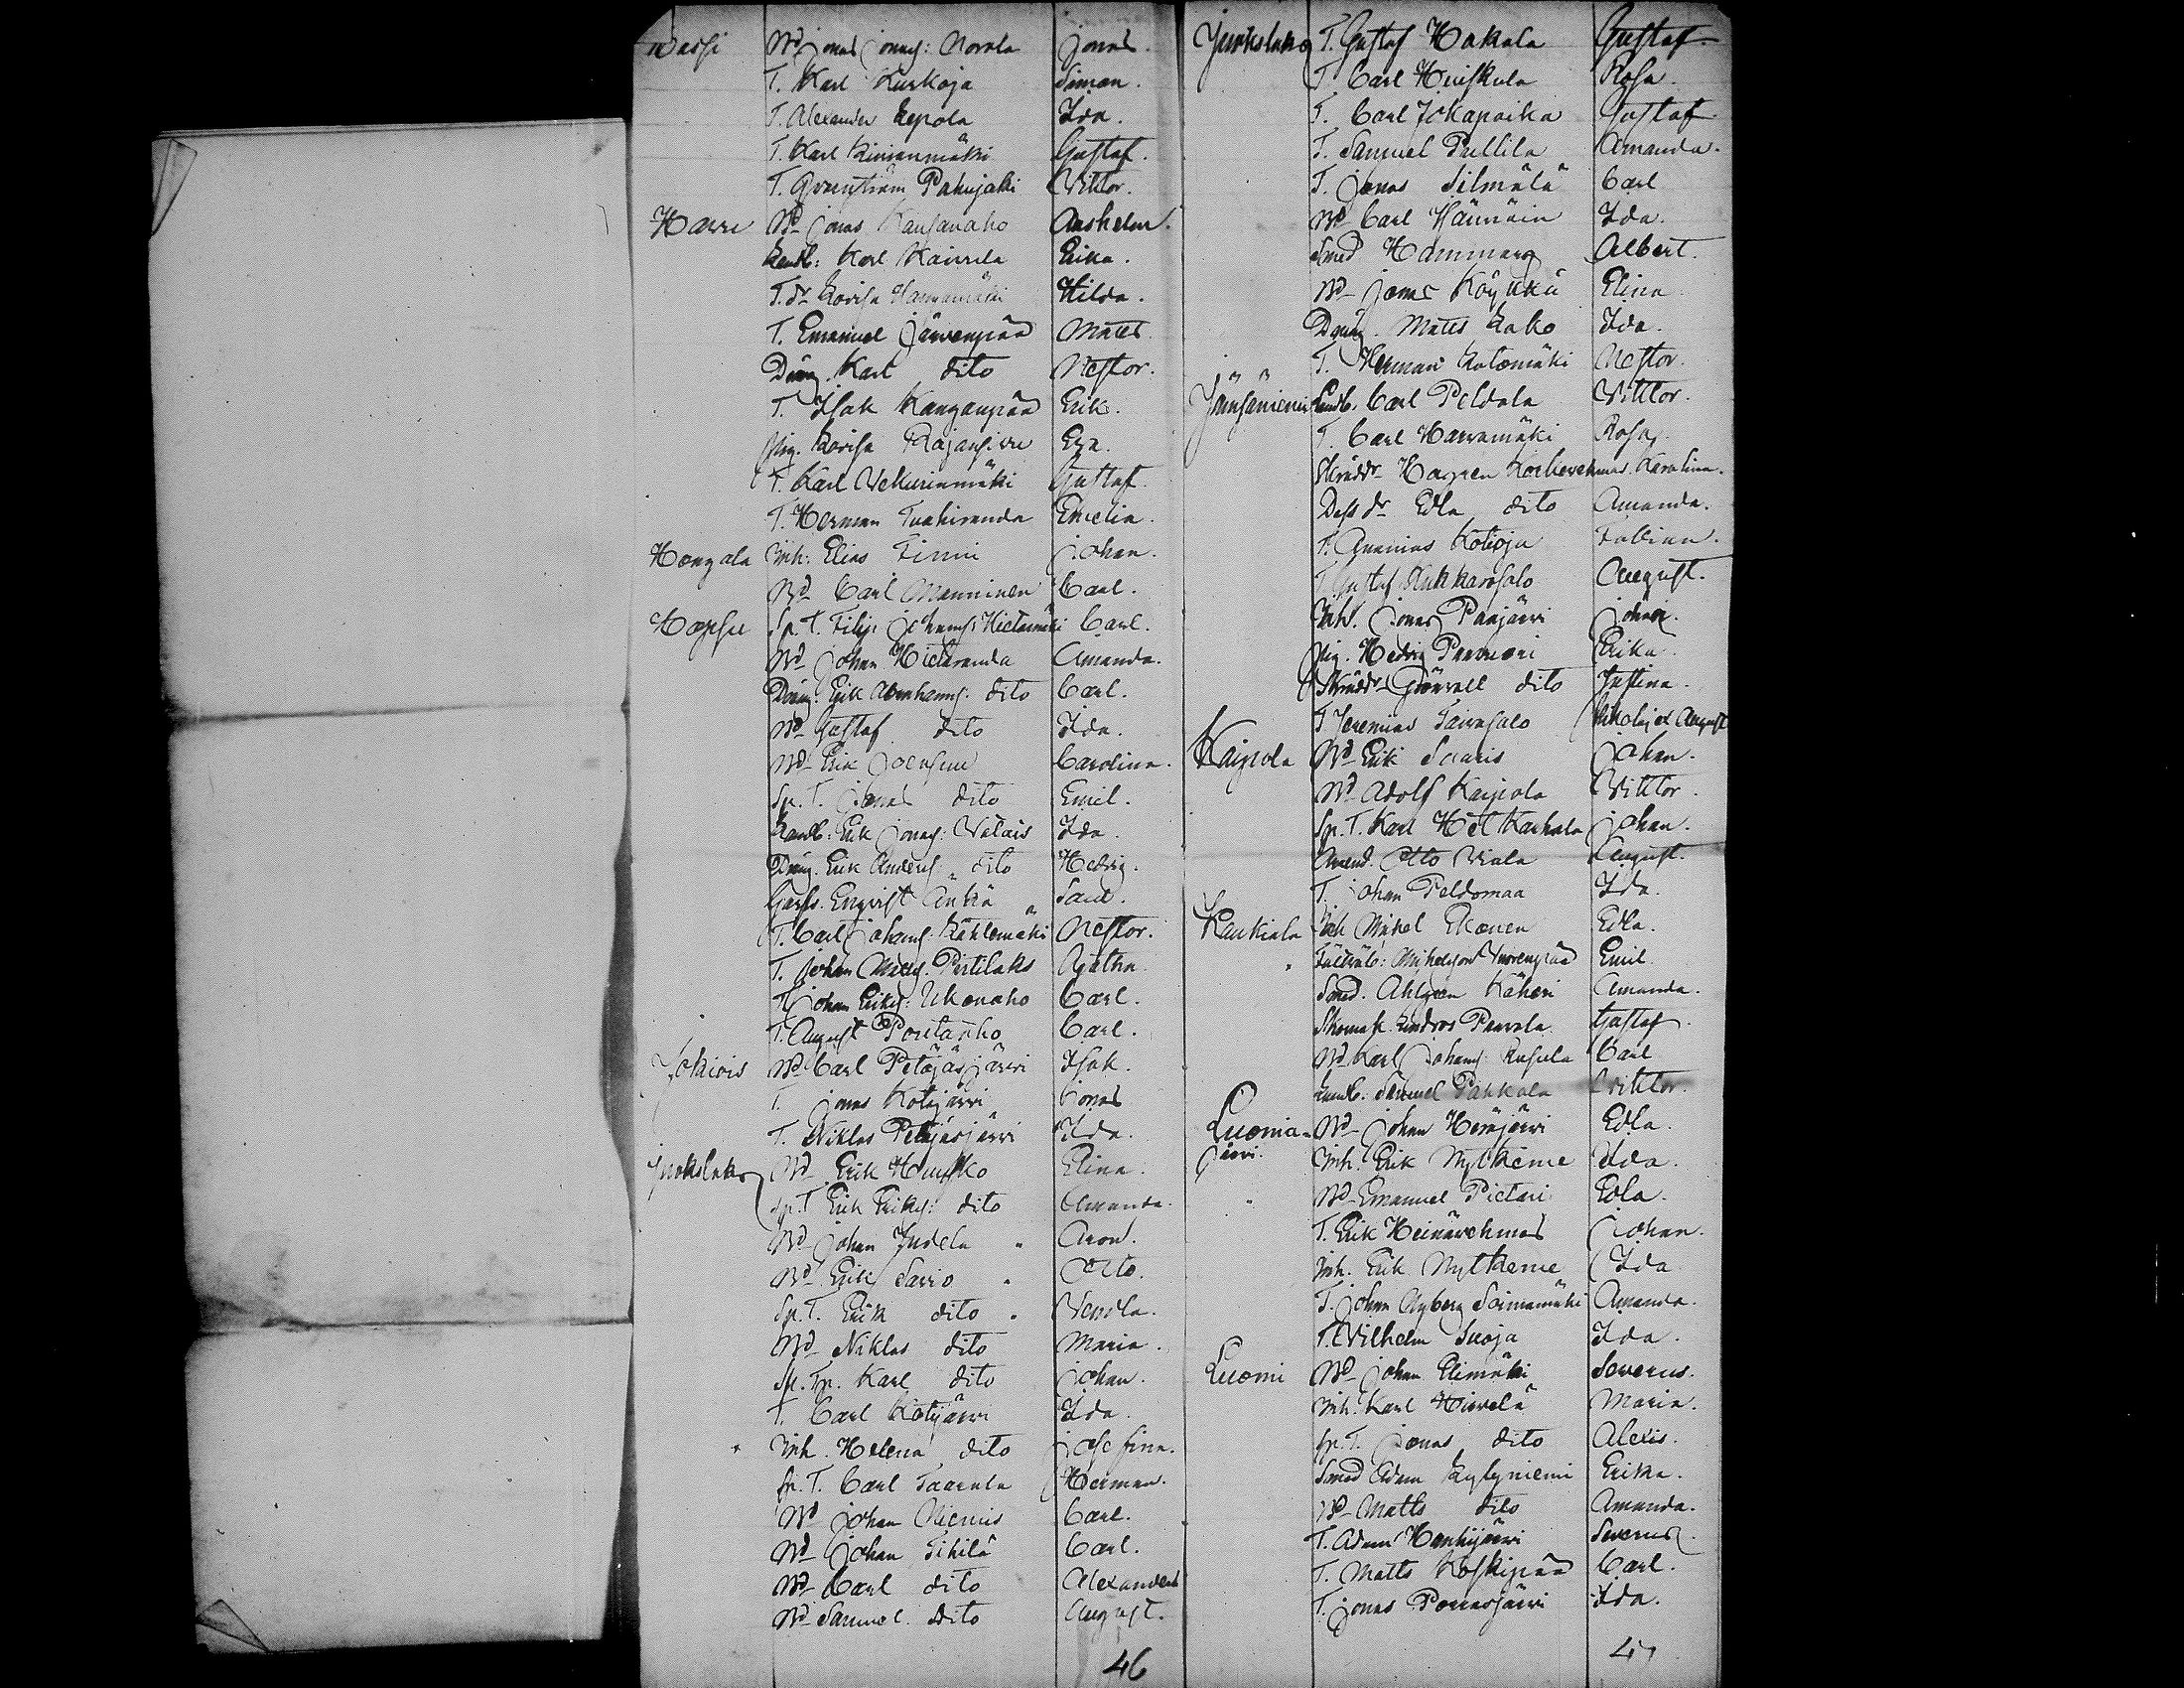 Wassi Bd Jonas Jonass: Norala Jonas.
T. Karl Kurkoja Simon.
T. Alexander Lepola Ida.
T. Karl Kivienmäki Gustaf.
T. Pahujaki Viktor.
Harri Bd Jonas Kansanaho Anshelm.
Landb: Karl Kaivela Erika.
T. dr Lovisa Harramäki Hilda.
T. Emanuel Järvenpää Matts
Dräng. Karl dito Nestor.
T. Isak Kangaspää Erik.
Pig. Lovisa Rajansivu Eva.
T. Karl Wekurinmäki Gustaf.
T. Herman Tuahiranda Emelia.
Hongala Inh: Elias Finni Johan.
Bd Carl Manninen Carl.
Hopsu Sp. T. Filip Johans: Hietamäki Carl.
Bd Johan Hietaranda Amanda.
Dräng. Erik Abrahams: dito Carl.
Bd Gustaf dito Ida.
Bd Erik Joensuu Carolina.
Sp. T. Jonas dito Emil.
Landb: Erik Jonass: Walais Ida.
Dräng. Erik Anderss „ dito Hedvig.
Garfv. Enqvist Ankä „ Saul.
T. Carl Johans: Kählemäki Nestor.
T. Johan Matts. Pirtilaks Agatha.
T. Johan Eriks: Ukonaho Carl.
T. August Poutanho Carl.
Jokiois Bd Carl Petäjäsjärvi Isak.
T. Jonas Kotijärvi Jonas
T. Niklas Petäjäsjärvi Ida.
Jurkslaks Bd Erik Huisko Elina.
Sp. T Erik Eriks: dito Amanda.
Bd Johan Judela „ Aron.
Bd Erik Savio „ Otto.
Sp. T. Erik dito „ Vendla.
Bd Niklas dito Maria.
Sp. Tp. Karl dito Johan.
T. Carl Kotijärvi Ida.
Inh. Helena dito Josefina.
Sp. T. Carl Taarala Herman.
Bd Johan Niemis Carl.
Bd Johan Tikilä Carl.
Bd Carl dito Alexander
Bd Samuel dito August.
46
Jurkslaks T. Gustaf Hakala Gustaf.
T. Carl Huiskula Rosa.
T. Carl Jokapaika Gustaf.
T. Samuel Pullila Amanda.
T. Jonas Silmälä Carl
Bd Carl Hännäin Ida.
Smed Hammarg Albert.
Bd Jonas Köykkä Elina
Dräng. Matts Lako Ida.
T. Herman Katomäki Nestor.
Jämsäniemi Landb. Carl Peldola Viktor.
T. Carl Harramäki Rosa.
Skräddr Hagren Karolina.
Dess dr Edla dito Amanda.
T. Ananias Kotioja Fabian.
T. Gustaf Kukkarosalo August.
Inh. Jonas Paajärvi Johan.
Pig. Hedvig Paavuori Erika.
Skräddr Grönvall dito Justina.
T Jeremias Taivasalo Nikolaj et August
Kaipola Bd Erik Saaris Johan.
Bd Adolf Kaipola Viktor.
Sp. T. Karl Het Karhala Johan.
Arend. Otto Viala August.
T. Johan Peldomaa Ida.
Kaukiala Inh Mikel Ekonen Edla.
Emil.
Smed. Ahlgren Käheri Amanda.
Skomak. Lindros Paavola Gustaf.
Bd Karl Johans: Rusula Carl
Landb. Samuel Pakkala Viktor.
Luomajärvi. Bd Johan Heräjärvi Edla.
Inh. Erik Nytkeme Ida.
Bd Emanuel Pietari Edla.
T. Erik Heinävehmas Johan.
Inh. Erik Nytkeme Ida
T. Johan Nyberg Soimamäki Amanda.
T. Vilhelm Suoja Ida.
Luomi Bd Johan Elimäki Severus.
Inh. Karl Hirvelä Maria.
Sp. T. Jonas dito Alexis.
Smed Adam Kylyniemi Erika.
Bd Matts dito Amanda.
T. Adam Hanhijärvi Severus.
T. Matts Koskipää Carl.
T. Jonas Porrasjärvi Ida.
47